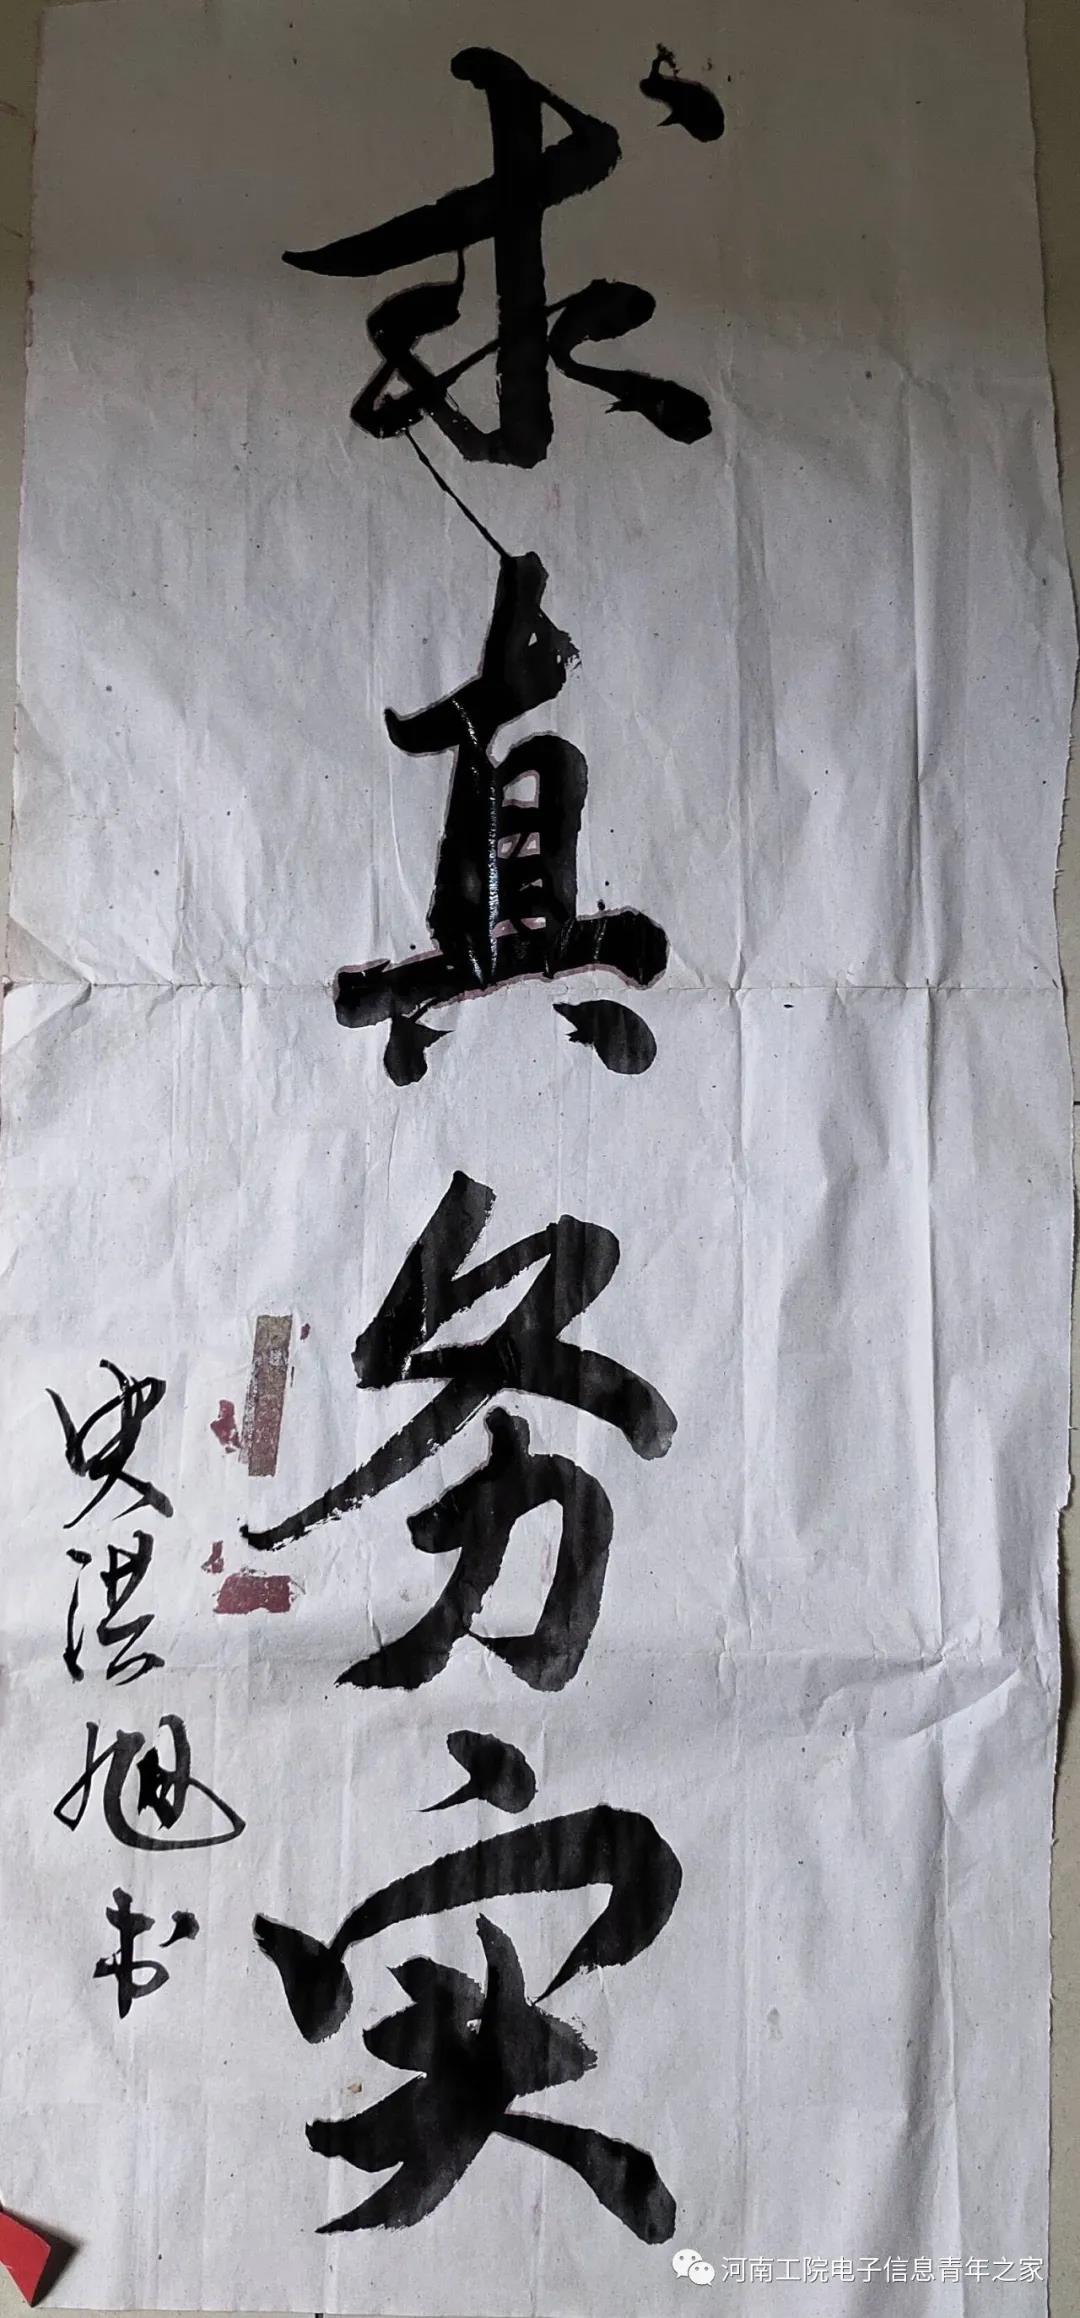 求真务实
史洪旭书
河南工院电子信息青年之家